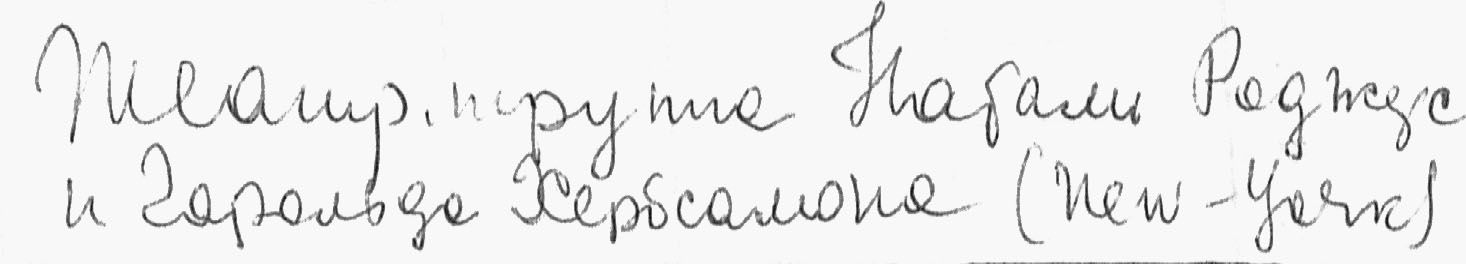 Театр. труппа Натали Роджерс
и Гарольда Хербсамона (New-York)